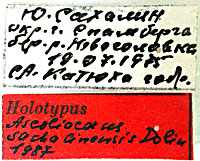 Ю. Сахалин
окр. г. Спамберга
бер. р. Новоселовка
19.07.1985
А. Катюха собр.
Holotypus
Ascoliocerus
sachalinensis Dolin
1987